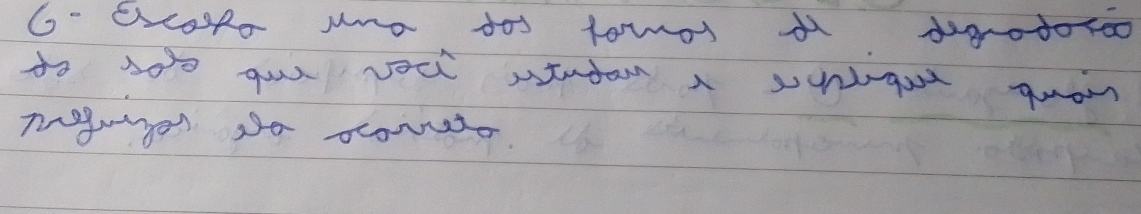 6- Escolha uma das formas de degradação
do solo que você estudou e explique quais
prejuízos ela acarreta.